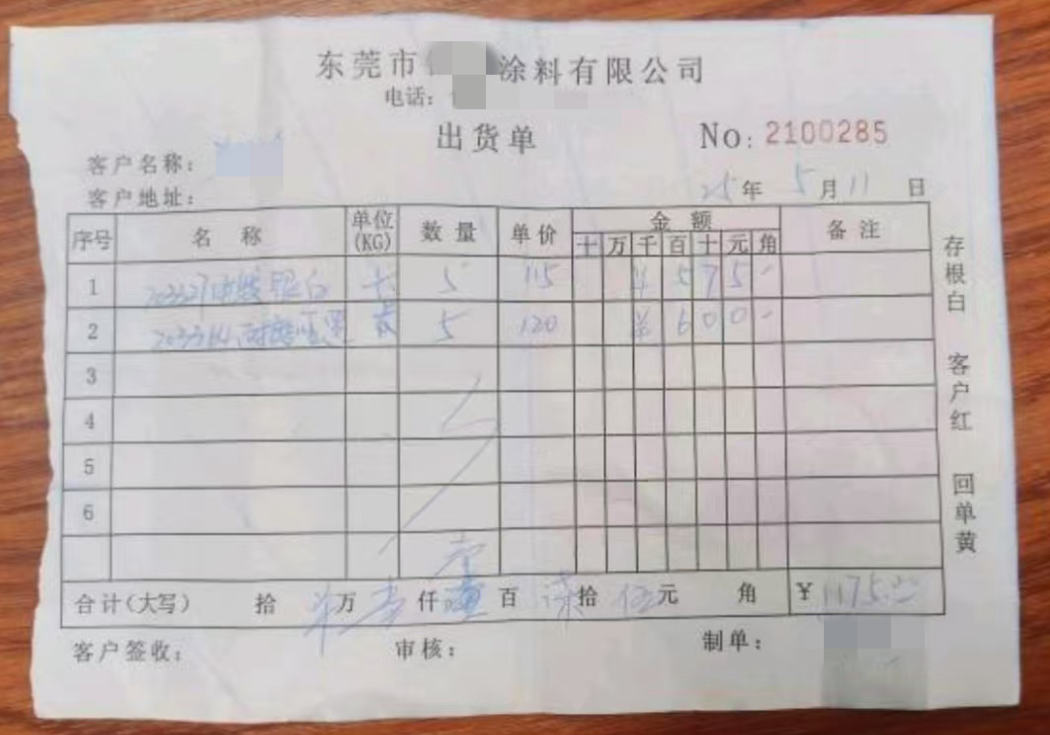 东莞市 涂料有限公司
电话：
出货单 No: 2100285
客户名称：
客户地址： 25年 5月 11日
序号 名称 单位(KG) 数量 单价 金额 备注
十 万 千 百 十 元 角
1 银白 5 115 ¥ 5 7 5 -
2 5 120 ¥ 6 0 0 -
3
4
5
6
合计(大写) 拾 万 壹仟 壹百 柒拾 伍元 角 ¥1175.00
客户签收： 审核： 制单：
存根白 客户红 回单黄